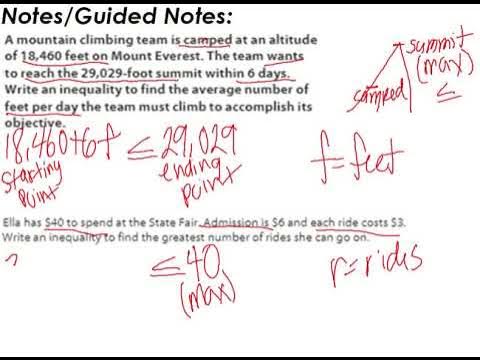 Notes/Guided Notes:
A mountain climbing team is camped at an altitude
of 18,460 feet on Mount Everest. The team wants
to reach the 29,029-foot summit within 6 days.
Write an inequality to find the average number of
feet per day the team must climb to accomplish its
objective.
summit
(max)
≤
camped
18,460+6f ≤ 29,029
starting
point
ending
point
f=feet
Ella has $40 to spend at the State Fair. Admission is $6 and each ride costs $3.
Write an inequality to find the greatest number of rides she can go on.
≤40
(max)
r=rides